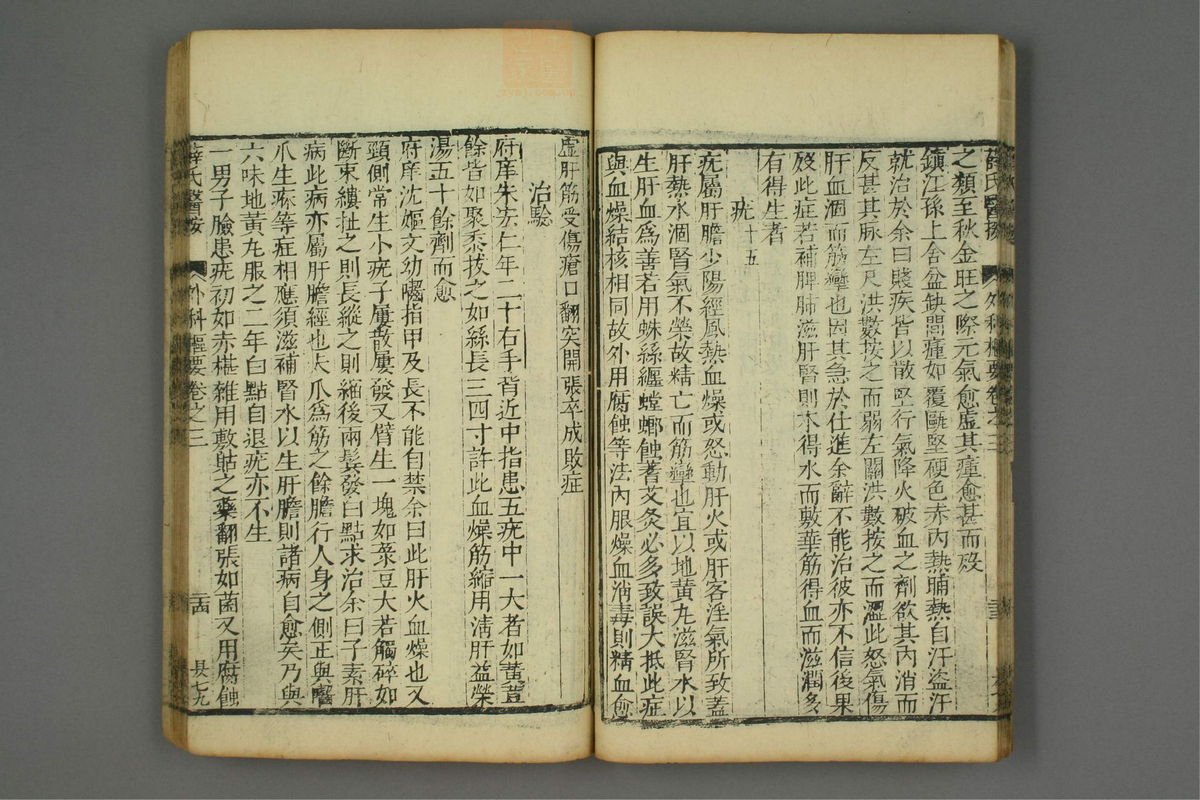 薛氏醫按 外科樞要卷之三
之類至秋金旺之際元氣愈虛其瘇愈甚而歿
鎮江孫上舍缺盆間瘇如覆甌堅硬色赤內熱晡熱自汗盜汗
就治於余曰賤疾皆以散堅行氣降火破血之劑欲其內消而
反甚其脉左尺洪數按之而弱左關洪數按之而濇此怒氣傷
肝血涸而筋攣也因其急於仕進余辭不能治彼亦不信後果
歿此症若補脾肺滋肝腎則木得水而敷華筋得血而滋潤多
有得生者
疣十五
疣屬肝膽少陽經風熱血燥或怒動肝火或肝客淫氣所致蓋
肝熱水涸腎氣不榮故精亡而筋攣也宜以地黃丸滋腎水以
生肝血爲善若用蛛絲纏螳螂蝕著艾灸必多致誤大抵此症
與血燥結核相同故外用腐蝕等法內服燥血消毒則精血愈
虛肝筋受傷瘡口翻突開張卒成敗症
治驗
府庠朱宏仁年二十右手背近中指患五疣中一大者如黃荳
餘皆如聚黍拔之如絲長三四寸許此血燥筋縮用淸肝益榮
湯五十餘劑而愈
府庠沈姬文幼嚙指甲及長不能自禁余曰此肝火血燥也又
頸側常生小疣子屢散屢發又臂生一塊如菉豆大若觸碎如
斷束縷扯之則長縱之則縮後兩鬓發白點求治余曰子素肝
病此病亦屬肝膽經也夫爪爲筋之餘膽行人身之側正與嚙
爪生疹等症相應須滋補腎水以生肝膽則諸病自愈矣乃與
六味地黃丸服之二年白點自退疣亦不生
一男子臉患疣初如赤椹雜用敷貼之藥翻張如菌又用腐蝕
薛氏醫按 外科樞要卷之三 長七九